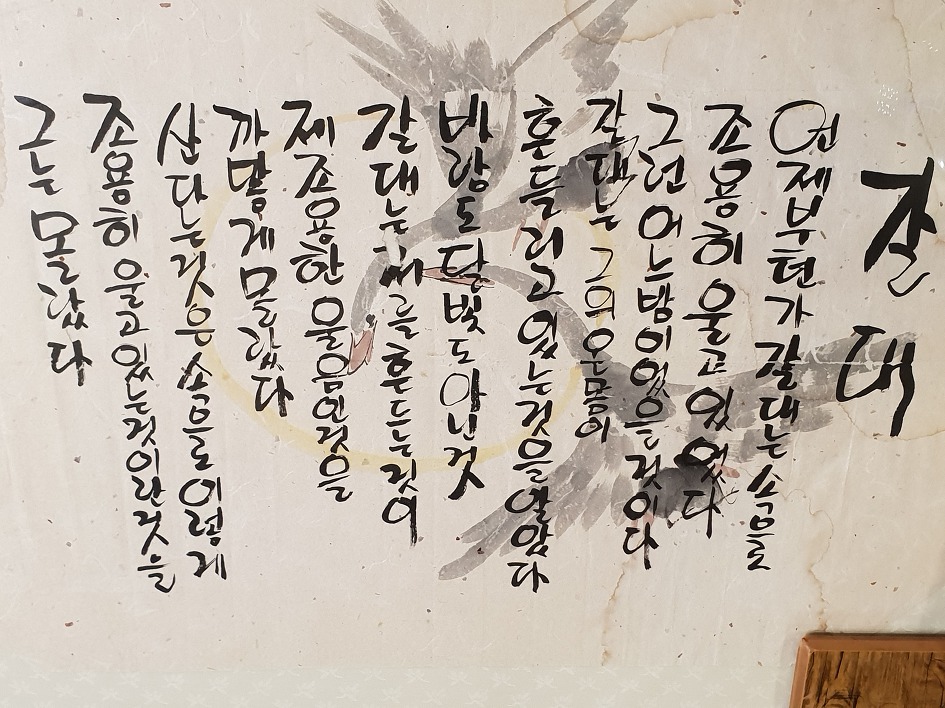 갈대
언제부턴가 갈대는 속으로
조용히 울고 있었다
그런 어느밤이었을것이다
갈대는 그의 온몸이
흔들리고 있는것을 알았다
바람도 달빛도 아닌것
갈대는 저를 흔드는것이
제 조용한 울음인것을
까맣게 몰랐다
산다는것은 속으로 이렇게
조용히 울고있는것이란것을
그는 몰랐다